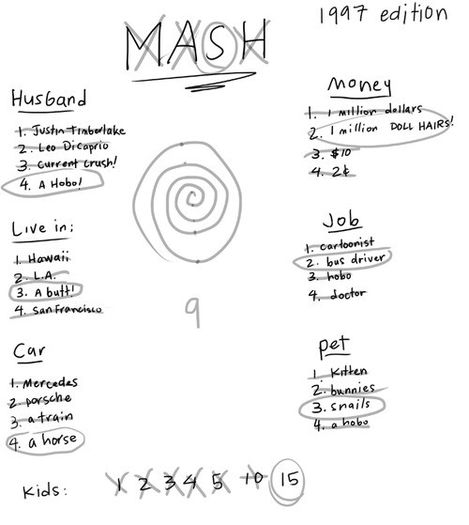 1997 edition
MASH
Husband
1. Justin Timberlake
2. Leo Dicaprio
3. Current crush!
4. A Hobo!
Live in:
1. Hawaii
2. L.A.
3. A butt!
4. San Francisco
Car
1. Mercedes
2. porsche
3. a train
4. a horse
9
Money
1. 1 million dollars
2. 1 million DOLL HAIRS!
3. $10
4. 2¢
Job
1. cartoonist
2. bus driver
3. hobo
4. doctor
pet
1. Kitten
2. bunnies
3. snails
4. a hobo
Kids: 1 2 3 4 5 10 15